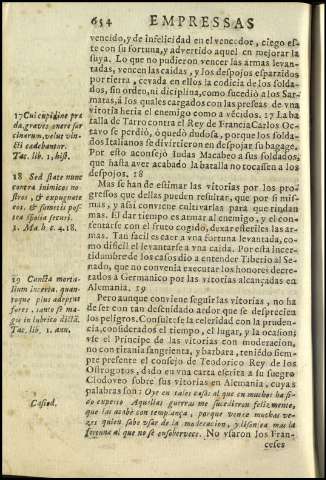 654 EMPRESSAS
vencido, y de infelicidad en el vencedor, ciego es-
te con su fortuna, y advertido aquel en mejorar la
suya. Lo que no pudieron vencer las armas levan-
tadas, vencen las caidas, y los despojos esparzidos
por tierra, cevada en ellos la codicia de los solda-
dos, sin orden, ni diciplina, como sucediò a los Sar-
matas, á los quales cargados con las presas de vna
vitoria heria el enemigo como a vécidos. 17 La ba
talla de Tarro contra el Rey de Francia Carlos Oc-
tavo se perdiò, ò quedò dudosa, porque los solda-
dos Italianos se divirtieron en despojar su bagage.
Por esto aconsejò Iudas Macabeo a sus soldados,
que hasta aver acabado la batalla no tocassen a los
despojos. 18
Mas se han de estimar las vitorias por los pro-
gressos que dellas pueden resultar, que por si mis-
mas, y assi conviene cultivarlas para que rindan
mas. El dar tiempo es armar al enemigo, y el con-
tentarse con el fruto cogido, dexar esteriles las ar-
mas. Tan facil es caer a vna fortuna levantada, co-
mo dificil el levantarse a vna caida. Por esta incer-
tidumbre de los casos diò a entender Tiberio al Se-
nado, que no convenia executar los honores decre-
tados à Germanico por las vitorias alcançadas en
Alemania. 19
Pero aunque conviene seguir las vitorias, no ha
de ser con tan descuidado ardor que se desprecien
los peligros. Consultese la celeridad con la pruden-
cia, considerados el tiempo, el lugar, y la ocasion;
vse el Principe de las vitorias con moderacion,
no con tirania sangrienta, y barbara, teniédo siem-
pre presente el consejo de Teodorico Rey de los
Ostrogotos, dado en vna carta escrita a su suegro
Clodoveo sobre sus vitorias en Alemania, cuyas
palabras son: Oye en tales casos al que en muchos ha si-
do experto. Aquellas guerras me sucedieron felizmente,
que las acabè con templança, porque vence muchas ve-
zes quien sabe vsar de la moderacion, y lisonjea mas la
fortuna al que no se ensobervece. No vsaron los Fran-
ceses
17 Cui cupidine præ
da, graves onere sar
cinarum, velut vin-
cti cædebantur.
Tac. lib. 1, hist.
18 Sed state nunc
contra inimicos no
stros, & expugnate
eos, & sumetis pos-
tea spolia securi.
1. Ma h. c. 4. 18.
19 Cuncta morta-
lium incerta, quan-
toque plus adeptus
foret, tanto se ma-
gis in lubrico dictã.
Tac. lib. 1. ann.
Casiod.